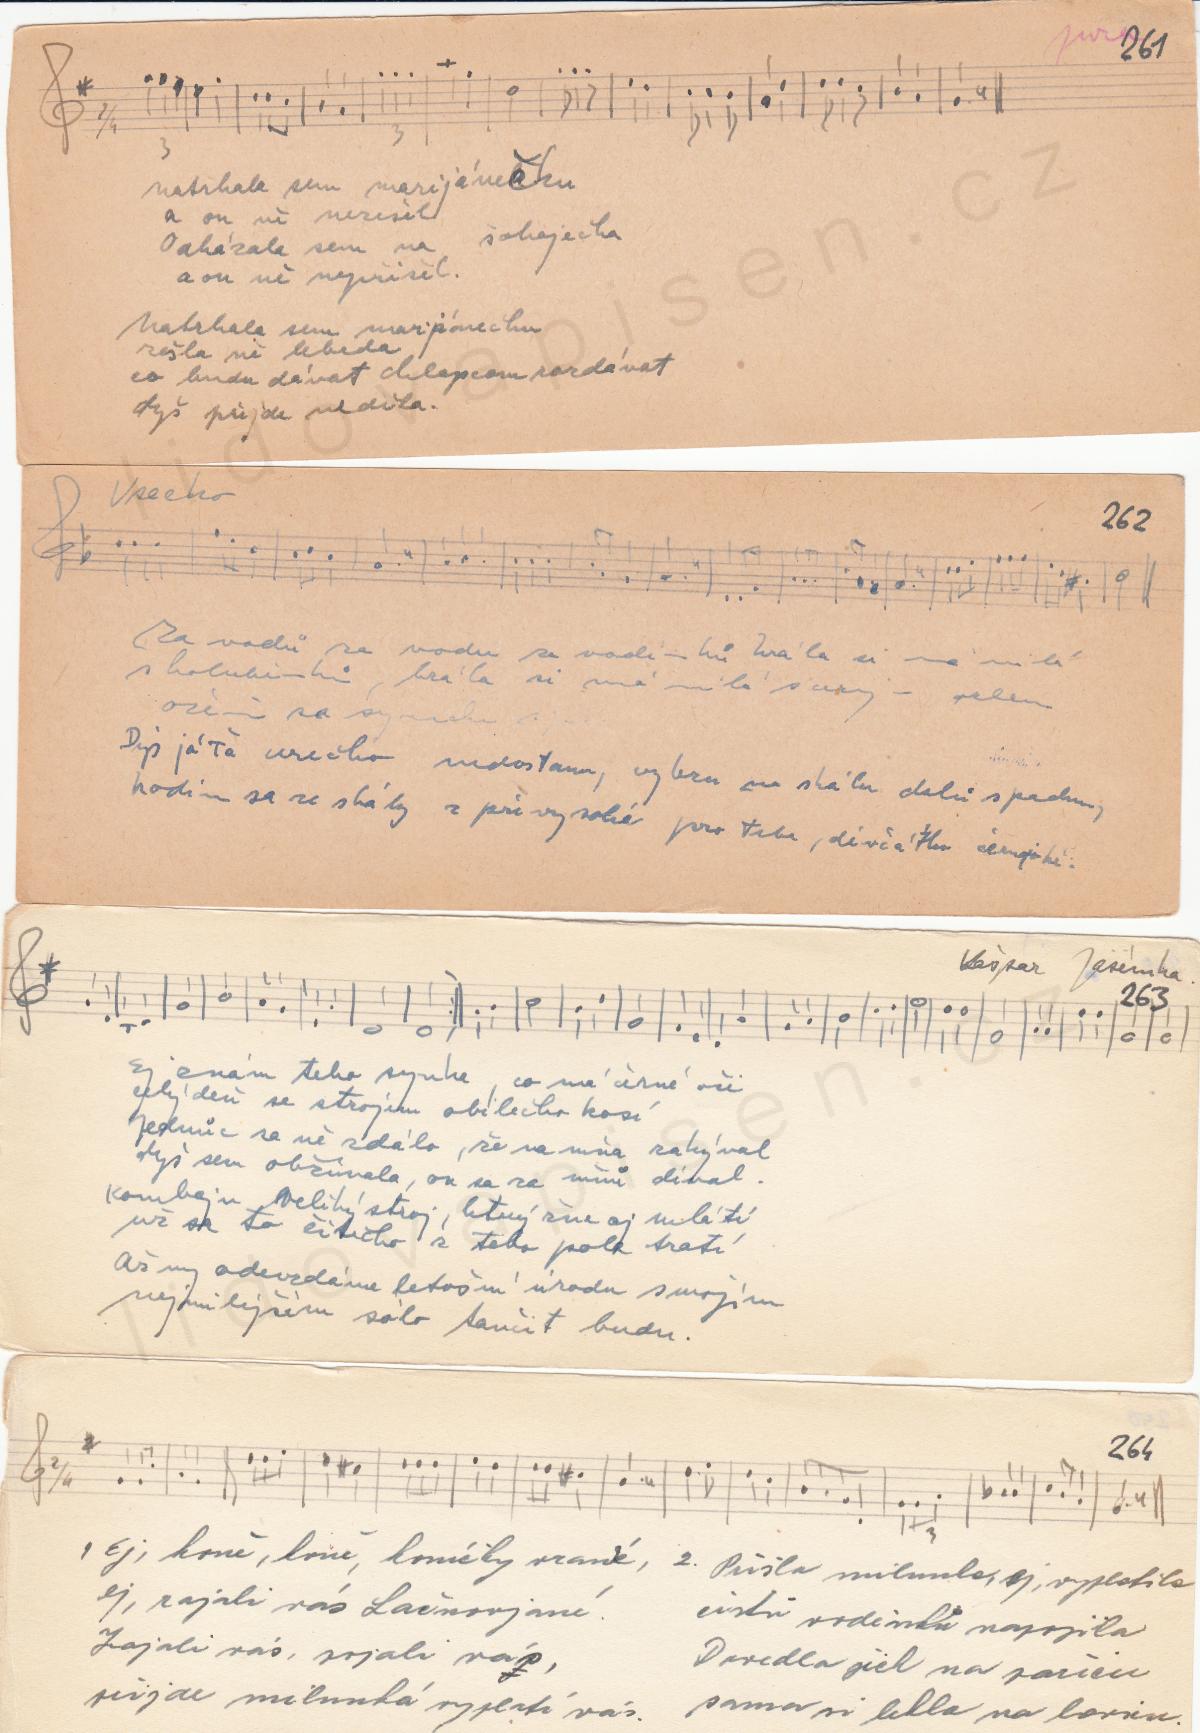 261
2/4
3
3
natrhala sem marijánečku
a on ně nezešél
Odkázala sem na šohaječka
a on ně nepřišél.
Natrhala sem marijánečku
zešla ně lebeda
co budu dávat chlapcom rozdávat
dyš přijde neděla.
262
Za vodů za vodu za vodínků hrála si má milá
s holubinků, hrála si má milá s
Dyš já tě cerečko nedostanu, vylezu na skálu dolů spadnu,
hodím sa ze skály z převysoké pro tebe, děvčátko černooké.
Kašpar Jašémka.
263
Ej znám teho synka, co má černé oči
celý deň se strojem obilečko kosí
Jednúc sa ně zdálo, že na mňa zakýval
dyš sem obžínala, on sa za mňů díval.
Kombajn veliký stroj, který žne aj mlátí
už sa to žítečko z teho pola tratí
Až my odevzdáme letošní úrodu s mojím
nejmilejším sólo tančit budu.
264
2/4
3
1 Ej, koně, koně, koníčky vrané,
ej, zajali vás Lačnovjané.
Zajali vás, zajali vás,
přijde milunká vyplatí vás.
2. Přišla milunka, ej, vyplatila
čistů vodénků napojila
Dovedla jich na
sama si lehla na